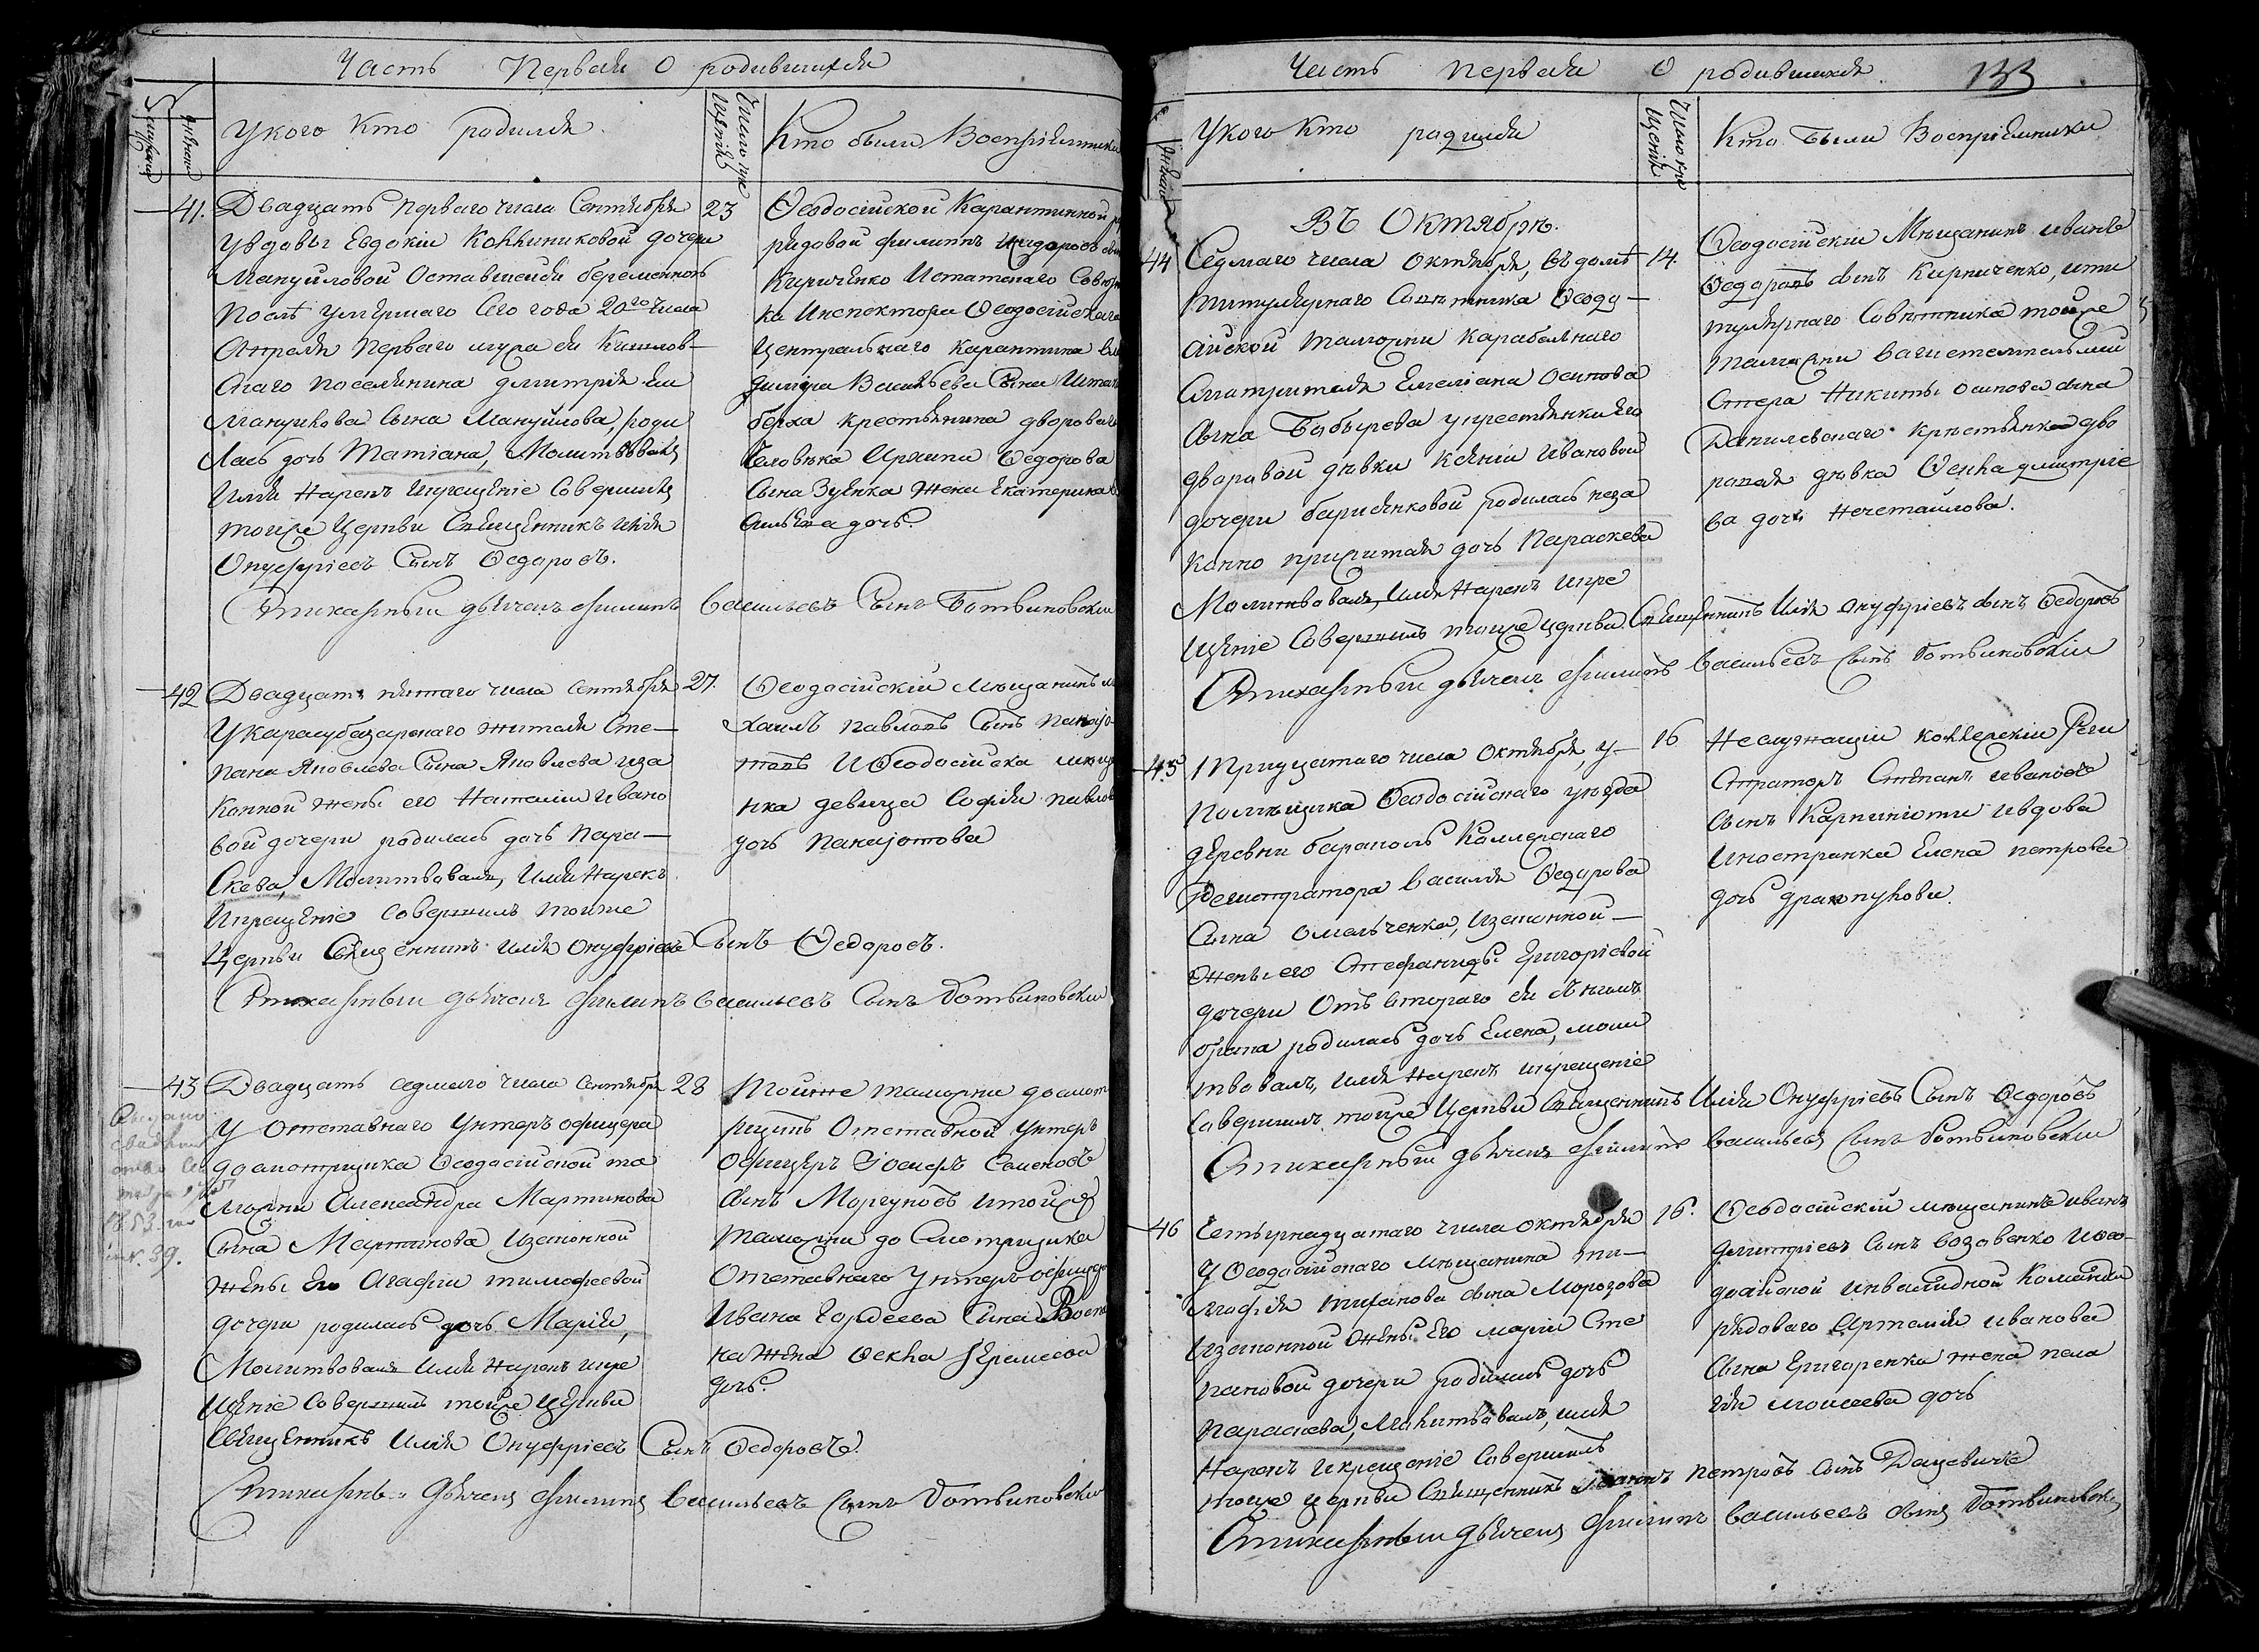 Часть Первая О родившихся
У кого кто родился.
Число кре
щенія
Кто были Воспріемники
41. Двадцать перваго числа Сентября
у вдовы Евдокіи
дочери
Мануйловой Оставшейся беременною
после умершаго Сего года 20го числа
Апреля перваго мужа ея
скаго поселянина Дмитрія
сына Мануйлова, роди
лась дочь Татіана, Молитвовалъ
Имя Нарекъ и крещеніе Совершилъ
тойже Церкви Священникъ Илія
Онуфріевъ Сынъ Федоровъ.
23
Феодосійской Карантинной
рядовой Филиппъ
Кириченко И статскаго Совѣтни
ка Инспектора Феодосійскаго
Центральнаго Карантина
Васильева Сына
крестьянина двороваго
Человѣка Архипа Федорова
Сына Зуенка жена Екатерина
дочь.
Стихарный дьячекъ Филиппъ Васильевъ Сынъ Ботвиновскій
42 Двадцать пятаго числа Сентября
У Карасубазарскаго жителя Сте-
пана Яковлева Сына Яковлева и за
конной жены его Наталіи Ивано
вой дочери родилась дочь Пара-
скева, Молитвовалъ, Имя Нарекъ
И крещеніе Совершилъ тойже
Церкви Священникъ Илія Онуфріевъ Сынъ Федоровъ.
27.
Феодосійскій Мещанинъ Ми
хаилъ Павловъ Сынъ Панаjо-
товъ И Феодосійска меща
нка девица Софія Павлова
дочь Панаjотова
Стихарный дьячекъ Филиппъ Васильевъ Сынъ Ботвиновскій
43 Двадцать седмаго числа Сентября
У Отставнаго Унтеръ офицера
досмотрщика Феодосійской та
можни Александра Мартинова
Сына Мартинова И законной
жены Его Агафіи Тимофеевой
дочери родилась дочь Марія,
Молитвовалъ имя Нарекъ и кре
щеніе Совершилъ тойже Церкви
Священникъ Илія Онуфріевъ Сынъ Федоровъ.
1853
№. 39.
28
Тойже таможни досмот
рщикъ Отставной Унтеръ
Офицеръ Іосифъ Семеновъ
Сынъ Моргуновъ и тойже
таможни досмотрщика
Отставнаго Унтеръ офицера
Ивана Гордеева Сына
жена Фекла Еремеева
дочь.
Стихарный дьячекъ Филиппъ Васильевъ Сынъ Ботвиновскій
Часть первая О родившихся
133
У кого кто родился
Число кре
щенія
Кто были Воспріемники
Въ Октябрѣ.
44 Седмаго числа Октября, въ доме
титулярнаго Советника Феодо-
сійской таможни Карабельнаго
Смотрителя Емеліана Осипова
Сына Бобырева у крестьянки его
дворовой девки Ксеніи Ивановой
дочери Борисенковой родилась неза
конно прижитая дочь Параскева
Молитвовалъ, Имя Нарекъ и кре
щеніе Совершилъ тойже церкви Священникъ Илія Онуфріевъ Сынъ Федоровъ
14.
Феодосійскій Мещанинъ Иванъ
Федоровъ Сынъ Кириченко, и ти
тулярнаго Советника тойже
таможни
Никиты Осипова Сына
Данилевскаго крестьянка дво
ровая девка Фекла Дмитрие
ва дочь Нечетайлова.
Стихарный дьячекъ Филиппъ Васильевъ Сынъ Ботвиновскій
45 Тридцатаго числа Октября, у-
помещика Феодосійскаго уезда
деревни Бараколь Коллежскаго
Регистратора Василія Федорова
Сына Омельченка, И законной-
жены его Стефаниды Григоріевой
дочери Отъ втораго ея
брака родилась дочь Елена, моли
твовалъ, имя Нарекъ и крещеніе
Совершилъ тойже Церкви Священникъ Илія Онуфріевъ Сынъ Федоровъ
16
Неслужащій коллежскій Реги
страторъ Степанъ Ивановъ
Сынъ и вдова
иностранка Елена Петрова
дочь
Стихарный дьячекъ Филиппъ Васильевъ Сынъ Ботвиновскій
46 Четырнадцатаго числа Октября
у Феодосійскаго Мещанина Ти-
мофея Тихонова Сына Морозова
И законной жены Его Маріи Сте
пановой дочери родилась дочь
Параскева, Молитвовалъ, имя
Нарекъ и крещеніе Совершилъ
тойже церкви Священникъ Іоаннъ Петровъ Сынъ Дацевичъ
16.
Феодосійскій мещанинъ Иванъ
Дмитріевъ Сынъ и Фео-
досійской инвалидной Команды
рядоваго Артемія Иванова
Сына Григоренка жена Пела
гія Моисеева дочь
Стихарный дьячекъ Филиппъ Васильевъ Сынъ Ботвиновскій